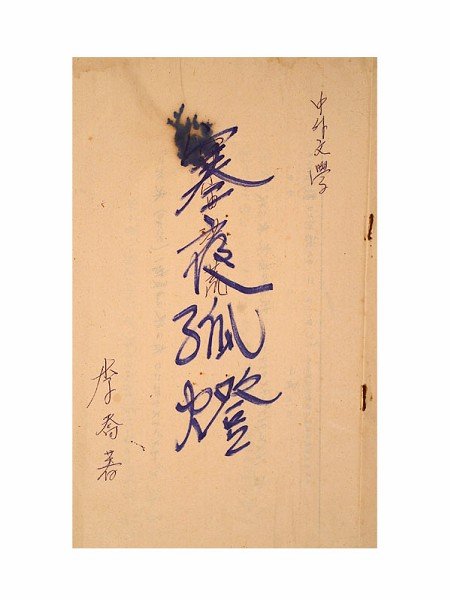 中外文學
寒夜孤燈
李喬著